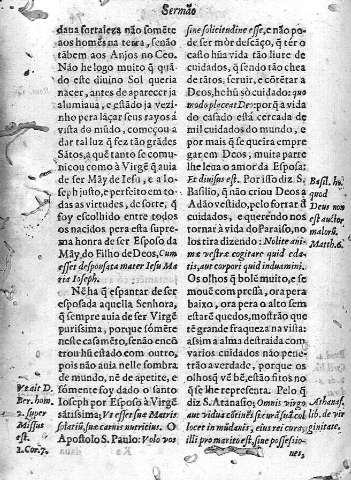 Sermão
daua fortaleza não sómẽte
aos homẽs na terra, senão
tãbem aos Anjos no Ceo.
Não he logo muito q̃ quã-
do este diuino Sol queria
nacer, antes de aparecer ja
alumiaua, e estãdo ja vezi-
nho pera lãçar seus rayos á
vista do mũdo, começou a
dar tal luz q̃ fez tão grãdes
Sãtos, a quẽ tanto se comu-
nicou como à Virgẽ q̃ auia
de ser Mãy de Iesu, e a Io-
seph justo, e perfeito em to-
das as virtudes, de sorte, q̃
foy escolhido entre todos
os nacidos pera esta supre-
ma honra de ser Esposo da
Mãy, do Filho de Deos, Cum
esset desponsata mater Iesu Ma-
ria Ioseph.
Nẽ ha q̃ espantar de ser
esposada aquella Senhora,
q̃ sempre auia de ser Virgẽ
purissima, porque sómẽte
neste casamẽto, senão encõ-
trou hũ estado com outro,
pois não auia nelle sombra
de mũdo, nẽ de apetite, e
sómente foy dado o santo
Ioseph por Esposo à Virgẽ
sãtissima; Vt esset suæ Matris
solatiũ, suæ carnis nutritius. O
Apostolo S. Paulo: Volo vos
Vt ait D.
Ber. hom.
2. super
Missus
est.
1. Cor. 7.
sine solicitudine esse, e não po-
de ser mòr descãço, q̃ tèr o
casto hũa vida tão liure de
cuidados, q̃ sendo tão chea
de tãtos, seruir, e cõtẽtar a
Deos, he hũ sò cuidado: quo
modo placeat Deo: porq̃ a vida
do casado está cercada de
mil cuidados do mundo, e
por mais que se queira em-
pregar em Deos, muita parte
lhe leua o amor da Esposa:
Et diuisus est. Por isso diz S.
Basilio, q̃ não criou Deos a
Adão vestido, pelo forrar a
cuidados, e querendonos
tornar à vida do Paraiso, no
los tira dizendo: Nolite ani-
mæ vestræ cogitare quid eda-
tis, aut corpori quid induamini.
Os olhos q̃ bolẽ muito, e se
mouẽ com pressa, ora pera
baixo, ora pera o alto sem
estarẽ quedos, mostrão que
tẽ grande fraqueza na vista:
assim a alma destraida com
varios cuidados não pene-
trão a verdade, porque os
olhos q̃ vè bẽ, estão firos no
q̃ se lhe representa. Pelo q̃
diz S. Atanasio; Omnis virgo
aut vidua
locet in mũdanis, eius rei cura,
illi pro marito est, siue possessio-
nes,
Basil. ho.
quod
Deus non
est auctor
malorũ.
Matth. 6.
Athanas.
lib. de vir
ginitate.